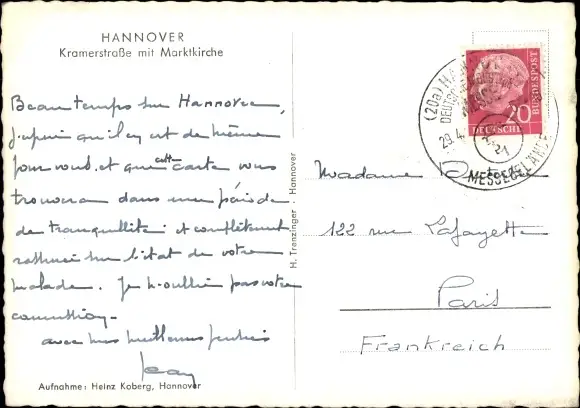 HANNOVER
Kramerstraße mit Marktkirche
Beau temps sur Hannovre,
j'espère qu'il en est de même
pour vous. et que cette carte vous
trouvera dans une période
de tranquillité et complètement
rassurée sur l'état de votre
malade. Je n'oublie pas votre
commission.
avec mes meilleures pensées
Jean
Aufnahme: Heinz Koberg, Hannover
H. Trenzinger, Hannover
20
DEUTSCHE
BUNDESPOST
(20a) HA
DEUTSCHE
MESSE
29.4.
21
MESSEGELÄNDE
Madame
122 rue Lafayette
Paris
Frankreich